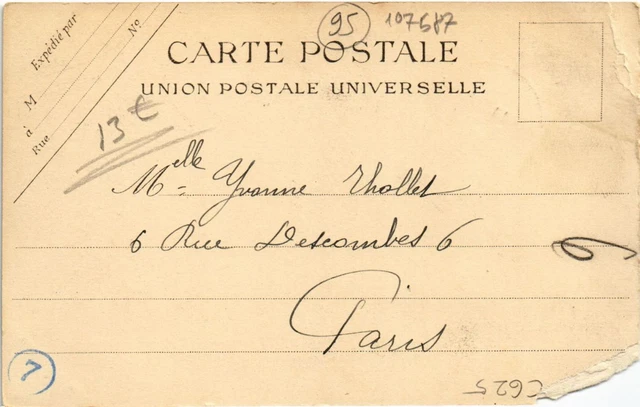 95 107587
Expédié par
M
à
Rue
No
CARTE POSTALE
UNION POSTALE UNIVERSELLE
13 €
Melle Yvonne Thollet
6 Rue Descombes 6
6
Paris
7
C625